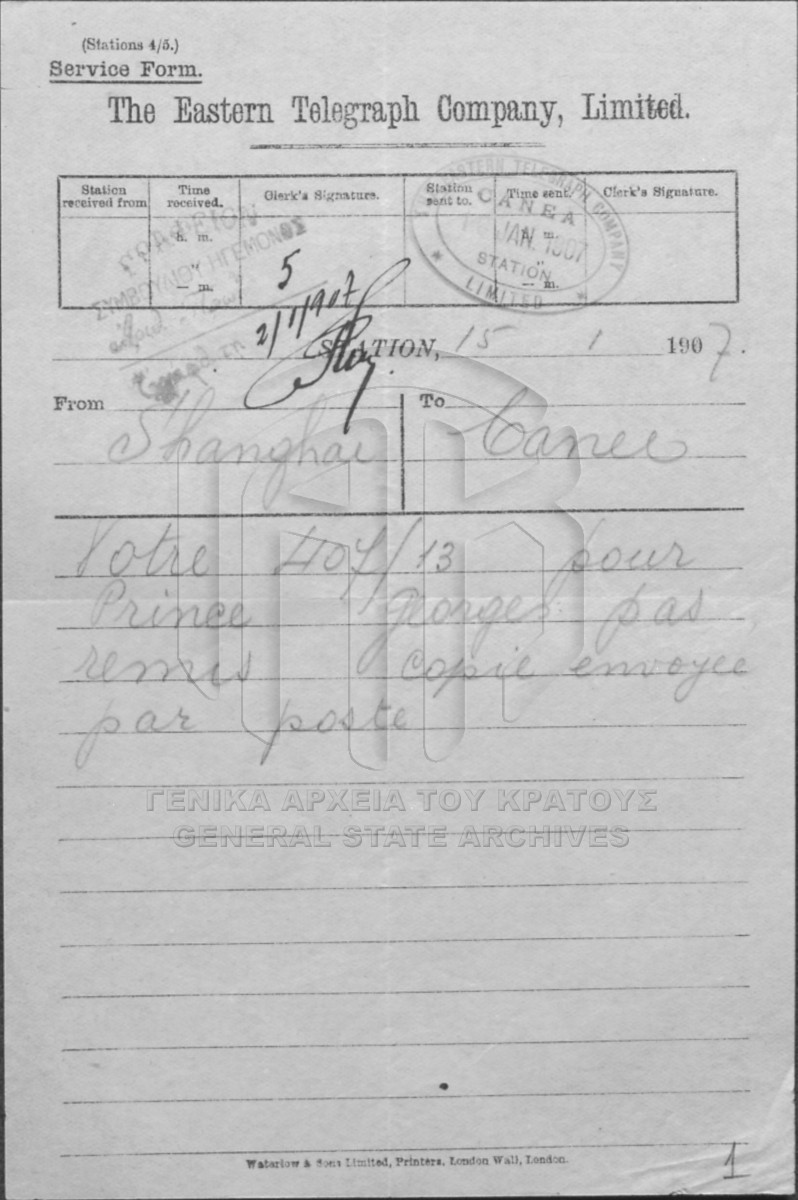 (Stations 4/5.)
Service Form.
The Eastern Telegraph Company, Limited.
Station received from
Time received.
Clerk's Signature.
Station sent to.
Time sent.
Clerk's Signature.
h. m.
" 
— m.
h. m.
"
— m.
THE EASTERN TELEGRAPH COMPANY
CANEA
JAN. 1907
STATION
LIMITED
ΓΡΑΦΕΙΟΝ
ΣΥΜΒΟΥΛΙΟΥ ΗΓΕΜΟΝΟΣ
5
2/1/907
STATION, 15 1 1907.
From
To
Shanghai
Canee
Votre 407/13 pour
Prince Georges pas
remis copie envoyee
par poste
ΓΕΝΙΚΑ ΑΡΧΕΙΑ ΤΟΥ ΚΡΑΤΟΥΣ
GENERAL STATE ARCHIVES
Waterlow & Sons Limited, Printers, London Wall, London.
1